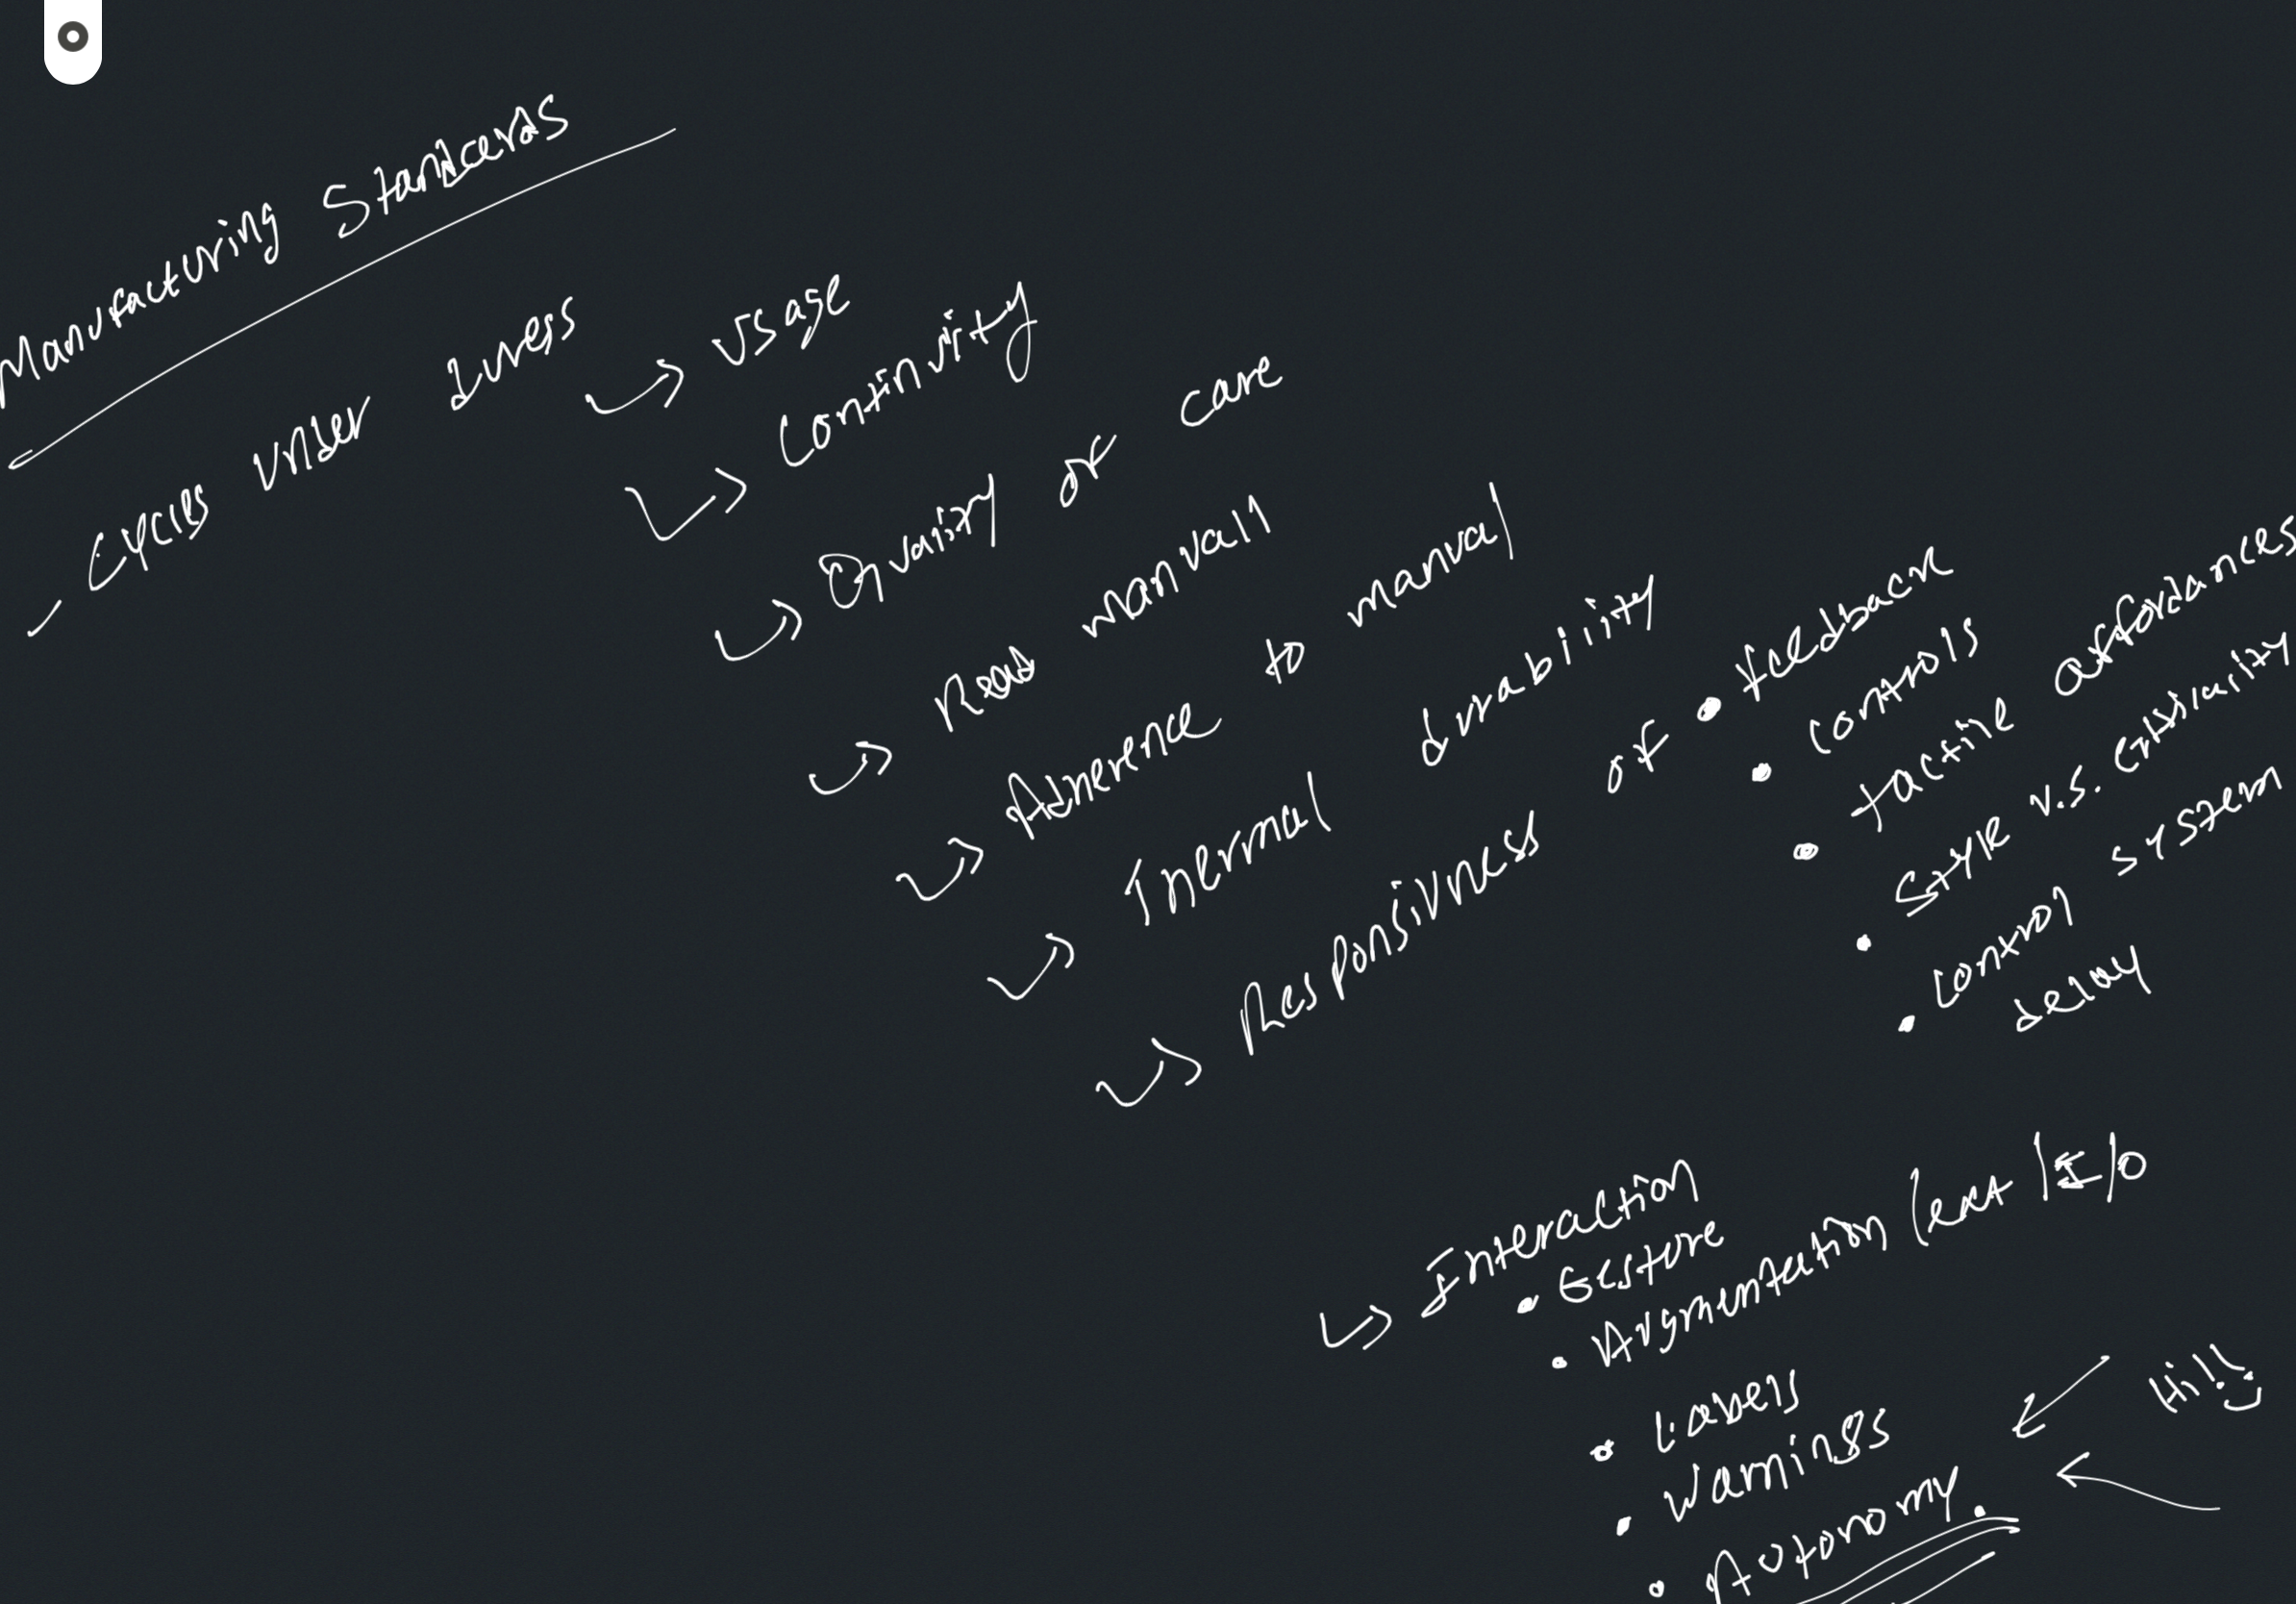 Manufacturing Standards
- Cycles under duress
↳ Usage
↳ Continuity
↳ Quality of care
↳ Read manual!
↳ Adherence to manual
↳ Thermal durability
↳ Responsivness of • feedback
• controls
• tactile affordances
• Style v.s. Criticality
• control system
delay
↳ Interaction
• Gesture
• Augmentation (ext | I/O
• Labels
• Warnings
• Autonomy.
Hi!! :)